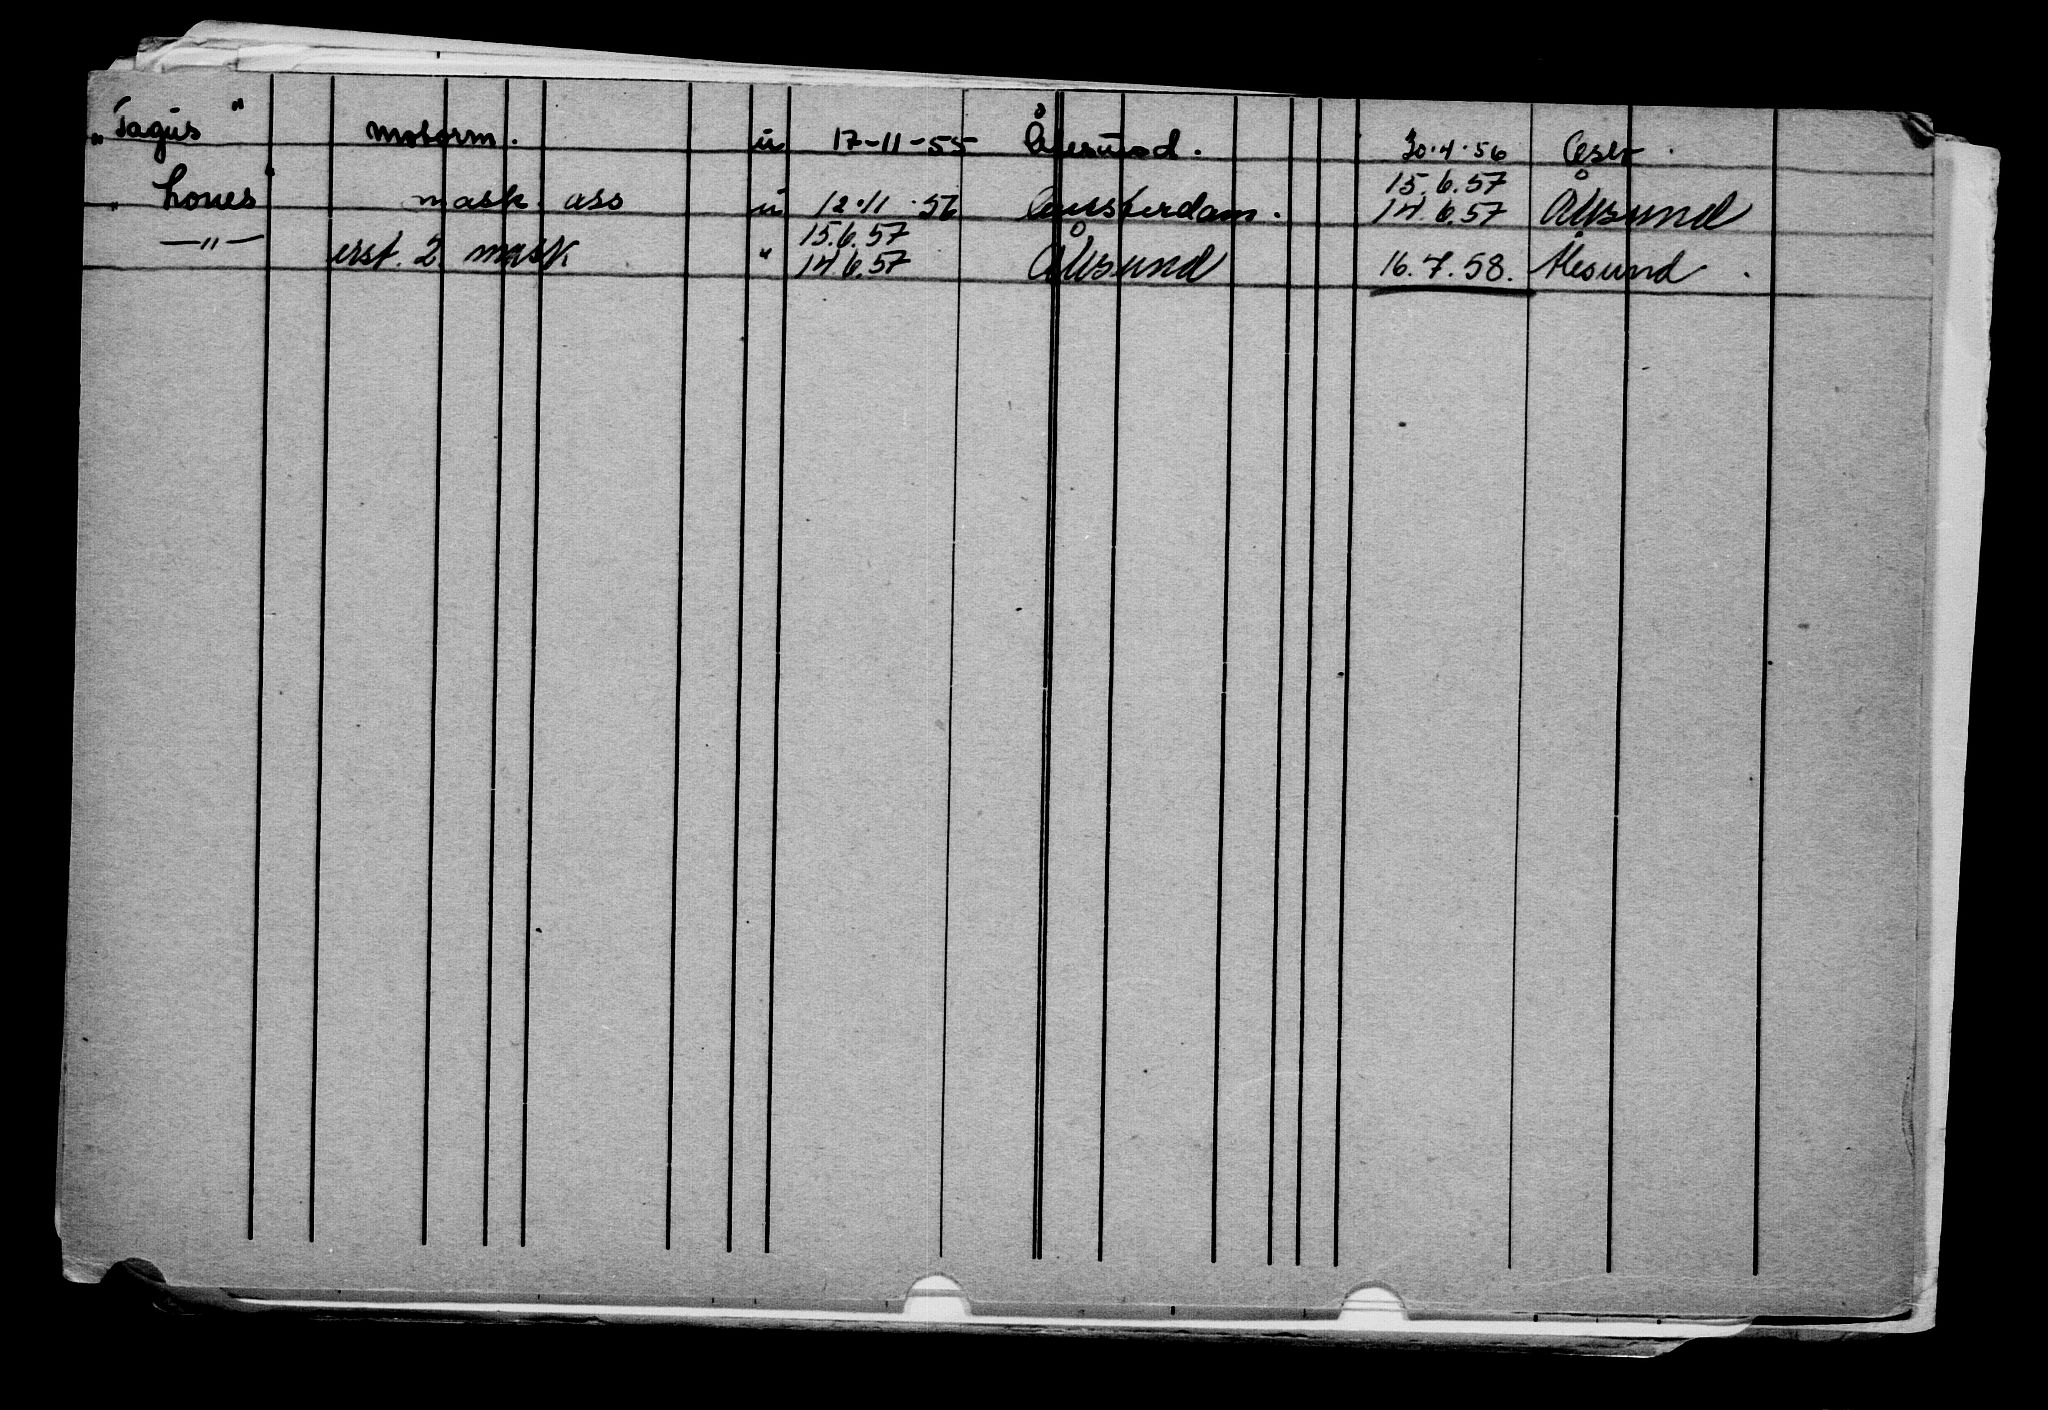 „Tagus" motorm. u 17-11-55 Ålesund. 30.4.56 Oslo.
15.6.57
„Lones" mask. ass u 12.11.56 Amsterdam. 14.6.57 Ålesund
15.6.57
—"— erst. 2 mask " 14.6.57 Ålesund 16.7.58. Ålesund.